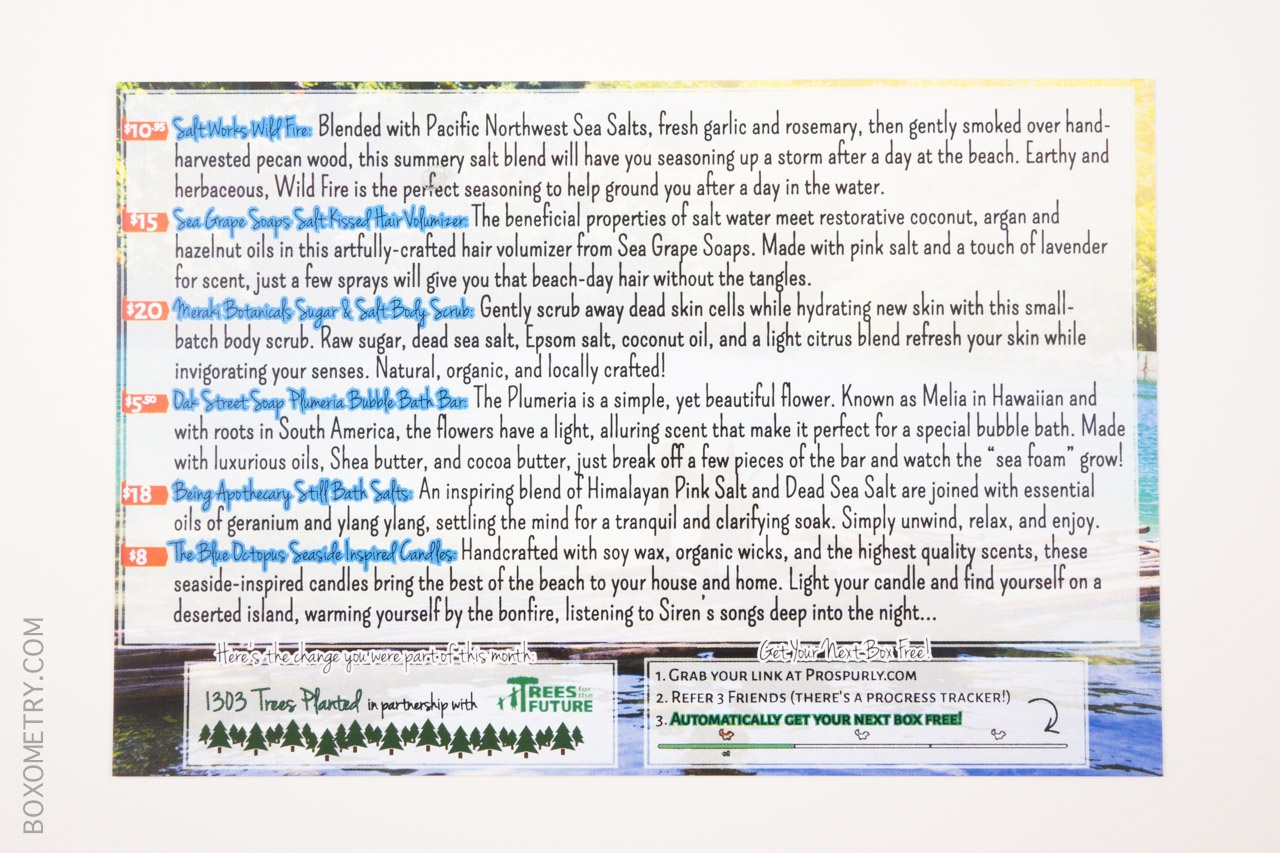 $10.95 SaltWorks Wild Fire: Blended with Pacific Northwest Sea Salts, fresh garlic and rosemary, then gently smoked over hand-
harvested pecan wood, this summery salt blend will have you seasoning up a storm after a day at the beach. Earthy and
herbaceous, Wild Fire is the perfect seasoning to help ground you after a day in the water.
$15 Sea Grape Soaps Salt Kissed Hair Volumizer: The beneficial properties of salt water meet restorative coconut, argan and
hazelnut oils in this artfully-crafted hair volumizer from Sea Grape Soaps. Made with pink salt and a touch of lavender
for scent, just a few sprays will give you that beach-day hair without the tangles.
$20 Meraki Botanicals Sugar & Salt Body Scrub: Gently scrub away dead skin cells while hydrating new skin with this small-
batch body scrub. Raw sugar, dead sea salt, Epsom salt, coconut oil, and a light citrus blend refresh your skin while
invigorating your senses. Natural, organic, and locally crafted!
$5.50 Oak Street Soap Plumeria Bubble Bath Bar: The Plumeria is a simple, yet beautiful flower. Known as Melia in Hawaiian and
with roots in South America, the flowers have a light, alluring scent that make it perfect for a special bubble bath. Made
with luxurious oils, Shea butter, and cocoa butter, just break off a few pieces of the bar and watch the "sea foam" grow!
$18 Being Apothecary Still Bath Salts: An inspiring blend of Himalayan Pink Salt and Dead Sea Salt are joined with essential
oils of geranium and ylang ylang, settling the mind for a tranquil and clarifying soak. Simply unwind, relax, and enjoy.
$8 The Blue Octopus Seaside Inspired Candles: Handcrafted with soy wax, organic wicks, and the highest quality scents, these
seaside-inspired candles bring the best of the beach to your house and home. Light your candle and find yourself on a
deserted island, warming yourself by the bonfire, listening to Siren's songs deep into the night...
Here's the change you were part of this month:
1303 Trees Planted in partnership with
TREES for the FUTURE
Get Your Next Box Free!
1. Grab your link at Prospurly.com
2. Refer 3 Friends (there's a progress tracker!)
3. Automatically get your next box free!
BOXOMETRY.COM